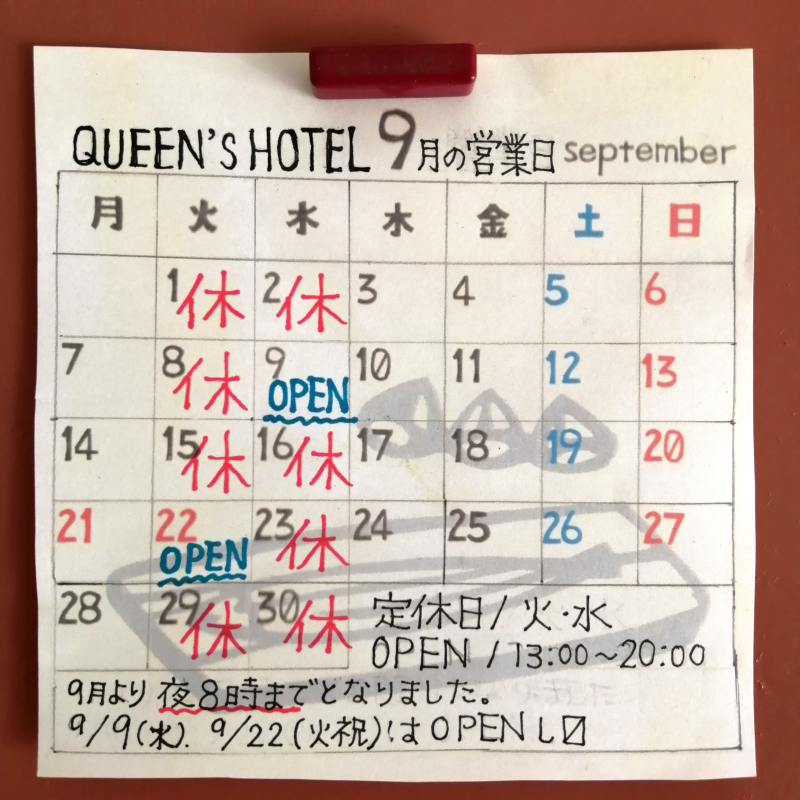 QUEEN'S HOTEL 9月の営業日 september
月 火 水 木 金 土 日
1休 2休 3 4 5 6
7 8休 9 OPEN 10 11 12 13
14 15休 16休 17 18 19 20
21 22 OPEN 23休 24 25 26 27
28 29休 30休 定休日/火・水
OPEN / 13:00〜20:00
9月より夜8時までとなりました。
9/9(水). 9/22(火祝)は OPENし〼